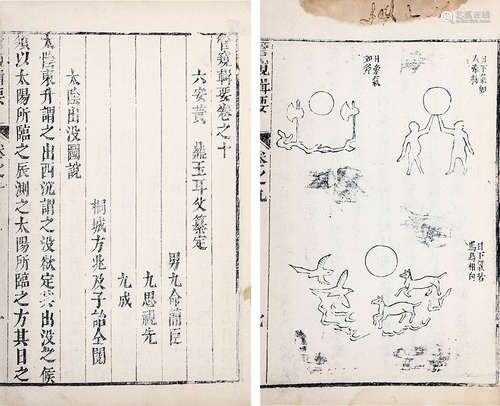 管窺輯要卷之十
六安黃 鼎玉耳父纂定
男九命諝臣
九思視先
九成
桐城方兆及子詒全閱
太陰出没圖說
太陰東升謂之出西沉謂之没欲定其出没之候
須以太陽所臨之辰測之太陽所臨之方其日之
管窺輯要
卷之九
日下氣如人形對
日旁氣如斧
日下氣若馬烏相向